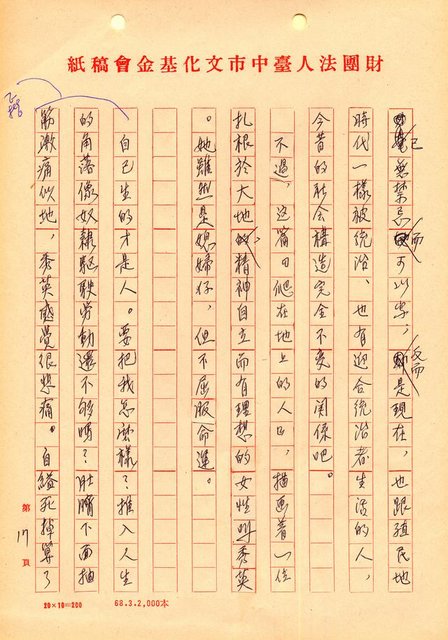 財團法人臺中市文化基金會稿紙
已無禁忌而可以寫,反而是現在,也跟殖民地
時代一樣被統治、也有迎合統治者生活的人,
今昔的社會構造完全不変的関係吧。
不過,這篇「爬在地上的人」,描画着一位
扎根於大地、精神自立而有理想的女性叫秀英
。她雖然是媳婦仔,但不屈服命運。
自己生的才是人。要把我怎麼樣?推入人生
的角落像奴隸駆駛労動還不够嗎?肚臍下面抽
筋激痛似地,秀英感覺很悲痛。自縊死掉算了
第17頁
20×10=200
68.3.2,000本